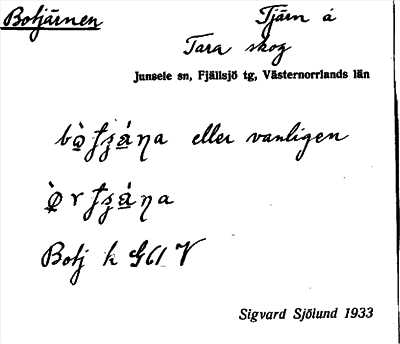 Botjärnen
Tjärn å
Tara skog
Junsele sn, Fjällsjö tg, Västernorrlands län
eller vanligen
Botj k G61 V
Sigvard Sjölund 1933